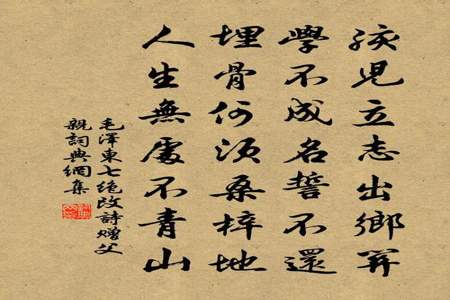 孩兒立志出鄉關
學不成名誓不還
埋骨何須桑梓地
人生無處不青山
毛澤東七絕改詩贈父
親詞典網集